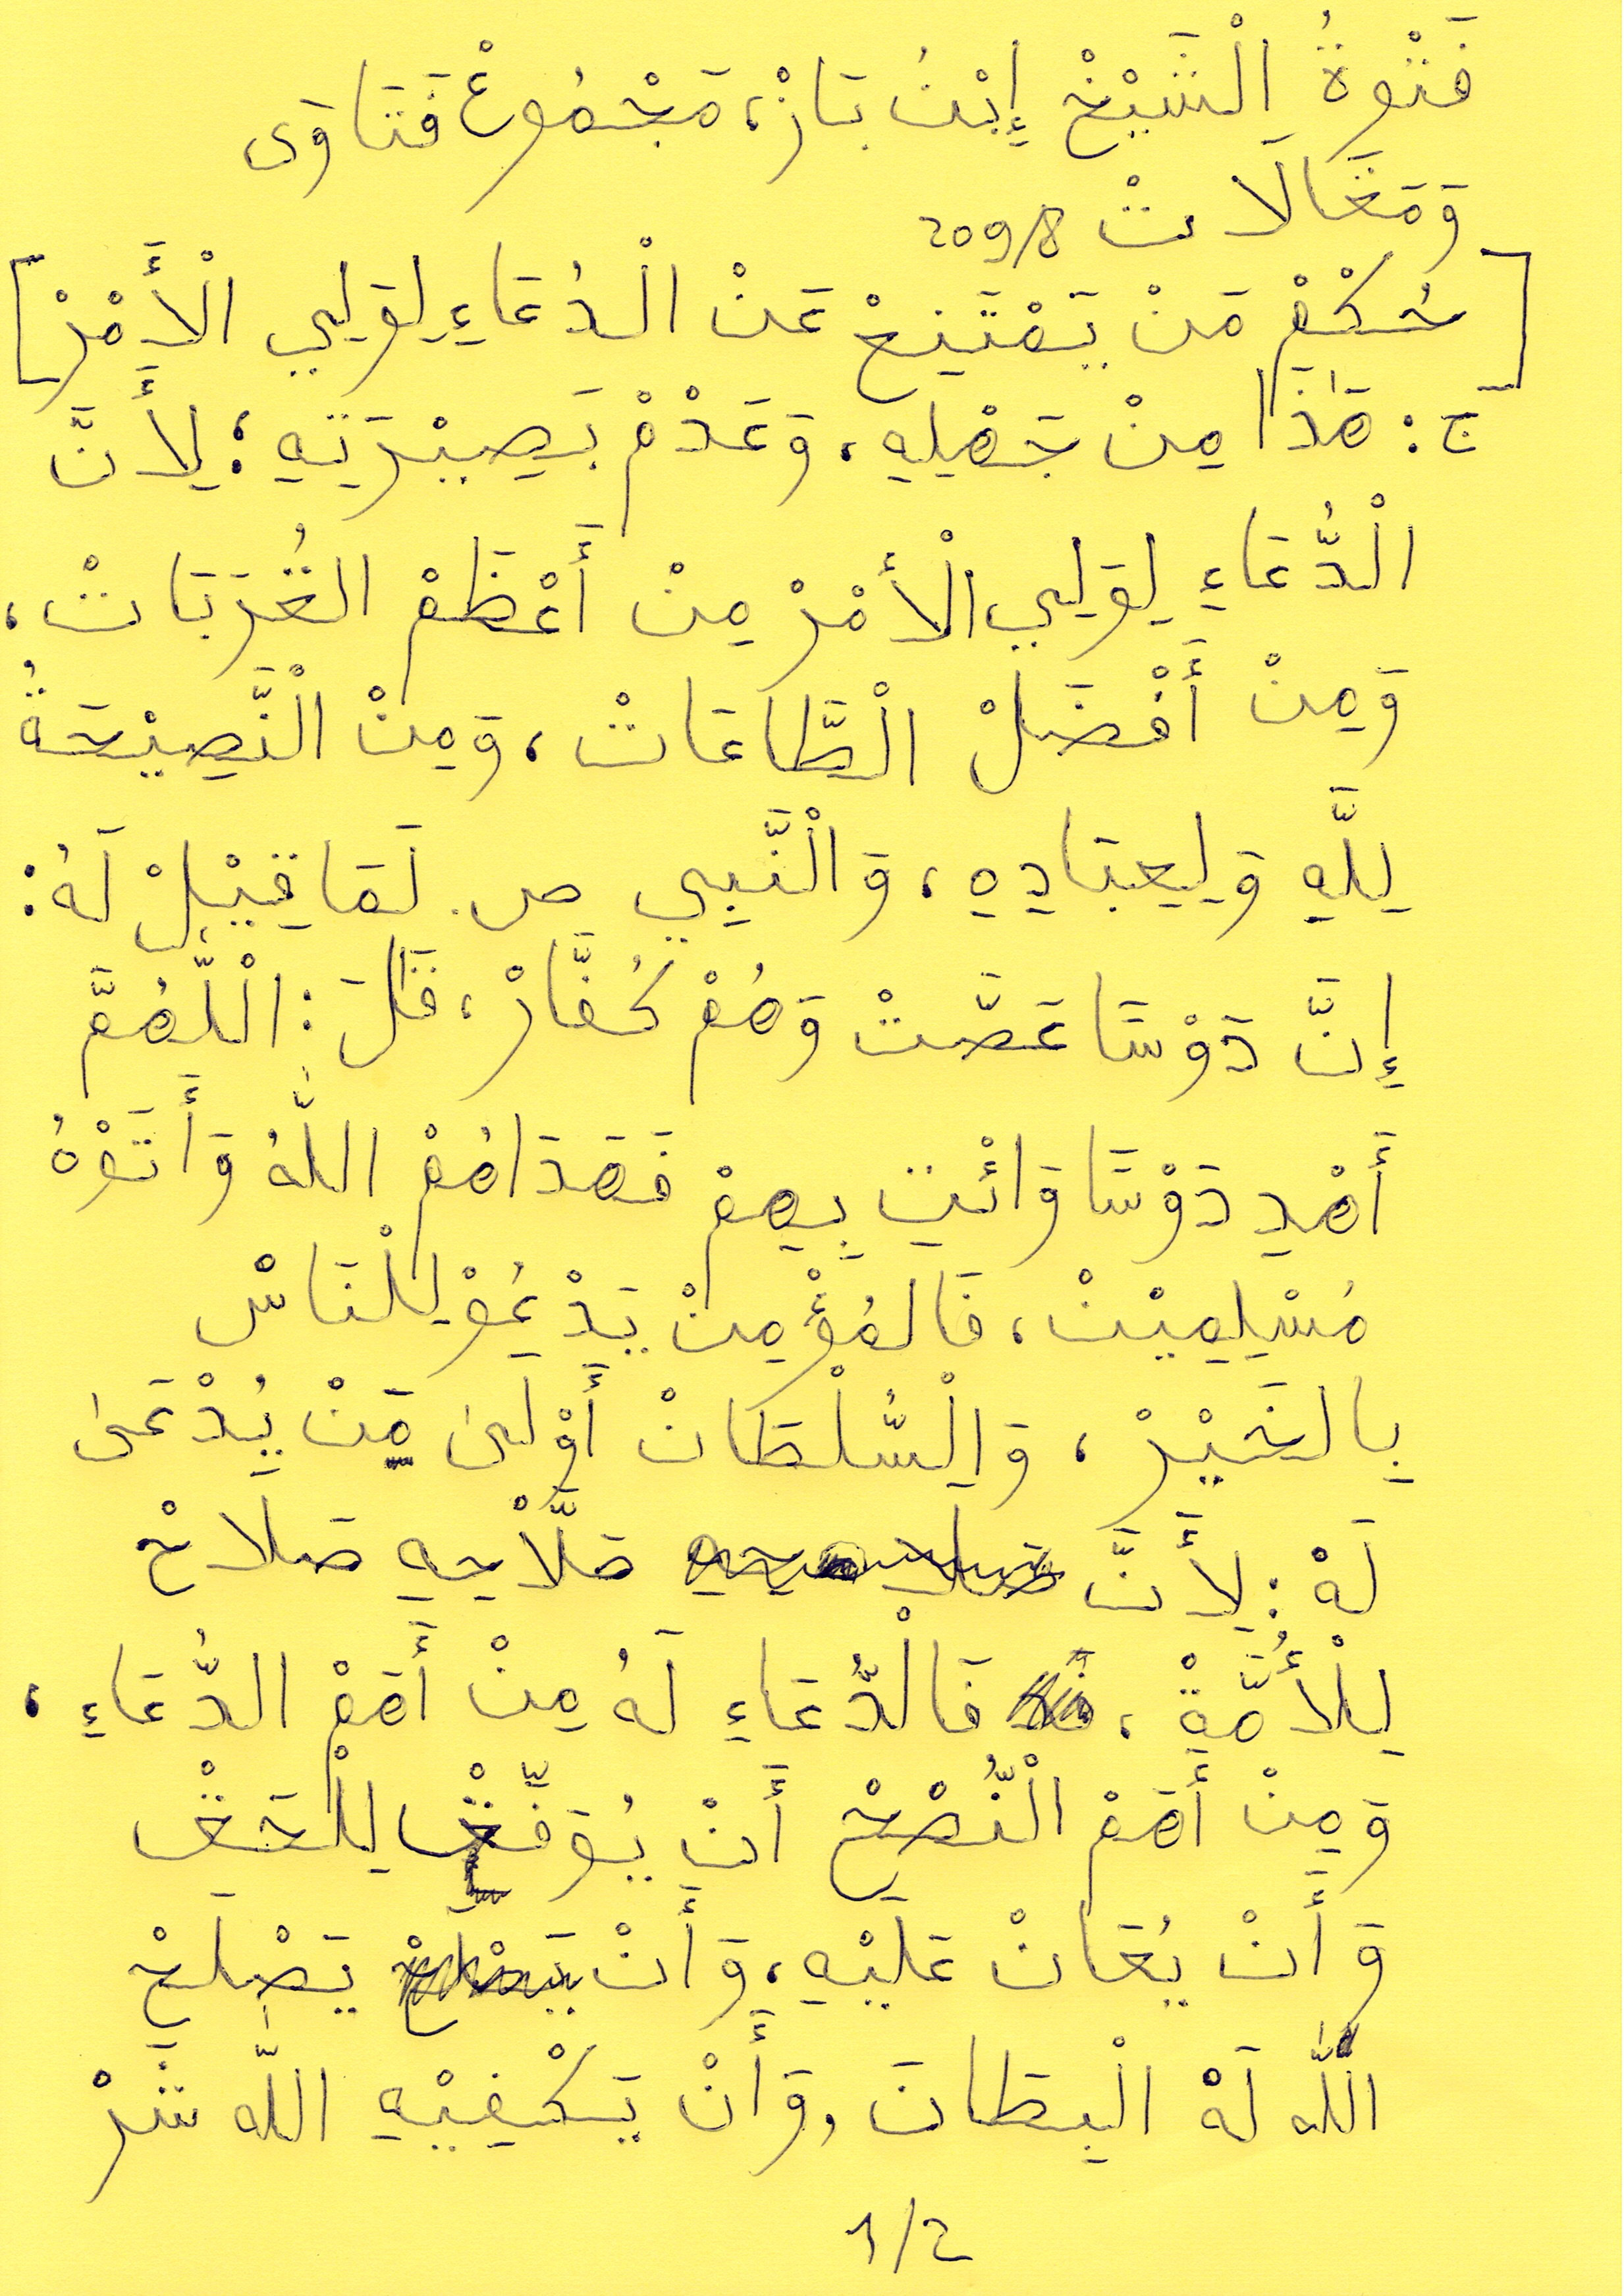 فَتْوةُ الْشَيْخْ إِبْنُ بَازْ، مَجْمُوعْ فَتَاوَى
وَمَقَالَاتْ 209/8
[حُكْمْ مَنْ يَمْتَنِعْ عَنْ الْدُعَاءِ لِوَلِيِ الْأَمْرْ]
ج: هَذَا مِنْ جَهْلِهِ، وَعَدْمْ بَصِيْرَتِهِ؛ لِأَنَّ
الْدُّعَاءِ لِوَلِيِ الْأَمْرْ مِنْ أَعْظَمْ القُرَبَاتْ،
وَمِنْ أَفْضَلْ الْطَّاعَاتْ، وَمِنْ الْنَّصِيْحَةُ
لِلَّهِ وَلِعِبَادِهِ، وَالْنَّبِيِ ص. لَمَا قِيْلْ لَهُ:
إِنَّ دَوْسَا عَصَّتْ وَهُمْ كُفَّارْ، قَالَ: الْلَّهُمَّ
أَهْدِ دَوْسَا وَائْتِ بِهِمْ فَهَدَاهُمْ اللّٰهُ وَأَتَوْهُ
مُسْلِمِيْنْ، فَالمُؤْمِنْ يَدْعُوْ لِلْنَاسْ
بِالخَيْرْ، وَالْسُّلْطَانْ أَوْلَى مَِنْ يُدْعَى
لَهْ: لِأَنَّ صَلَّاْحِهِ صَلَاحْ
لِلْأُمَّةْ، فَالْدُّعَاءِ لَهُ مِنْ أَهَمْ الدُّعَاءِ،
وَمِنْ أَهَمْ الْنُّصْحْ أَنْ يُوَفِّقْ لِلْحَقْ
وَأَنْ يُعَانْ عَلَيْهِ، وَأَنْ يَصْلِحْ
اللّٰه لَهْ الْبِطَانَ، وَأَنْ يَكْفِيْهِ اللّه شَرْ
1/2